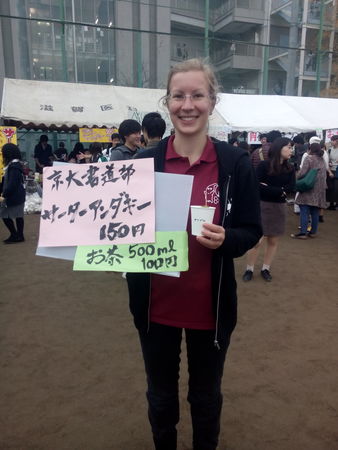 滋賀医
京大書道部
サーターアンダギー
150円
お茶 500ml
100円